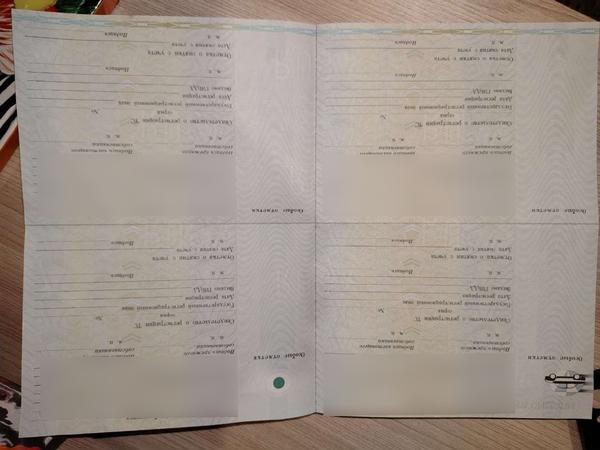 Особые отметки
Подпись прежнего Подпись настоящего
собственника собственника
М. П. М. П.
Свидетельство о регистрации ТС
серия №
Государственный регистрационный знак
Дата регистрации
Выдано ГИБДД
М. П. Подпись
Отметка о снятии с учета
Дата снятия с учета
М. П. Подпись
Особые отметки
Подпись прежнего Подпись настоящего
собственника собственника
М. П. М. П.
Свидетельство о регистрации ТС
серия №
Государственный регистрационный знак
Дата регистрации
Выдано ГИБДД
М. П. Подпись
Отметка о снятии с учета
Дата снятия с учета
М. П. Подпись
Особые отметки
Подпись прежнего Подпись настоящего
собственника собственника
М. П. М. П.
Свидетельство о регистрации ТС
серия №
Государственный регистрационный знак
Дата регистрации
Выдано ГИБДД
М. П. Подпись
Отметка о снятии с учета
Дата снятия с учета
М. П. Подпись
Особые отметки
Подпись прежнего Подпись настоящего
собственника собственника
М. П. М. П.
Свидетельство о регистрации ТС
серия №
Государственный регистрационный знак
Дата регистрации
Выдано ГИБДД
М. П. Подпись
Отметка о снятии с учета
Дата снятия с учета
М. П. Подпись